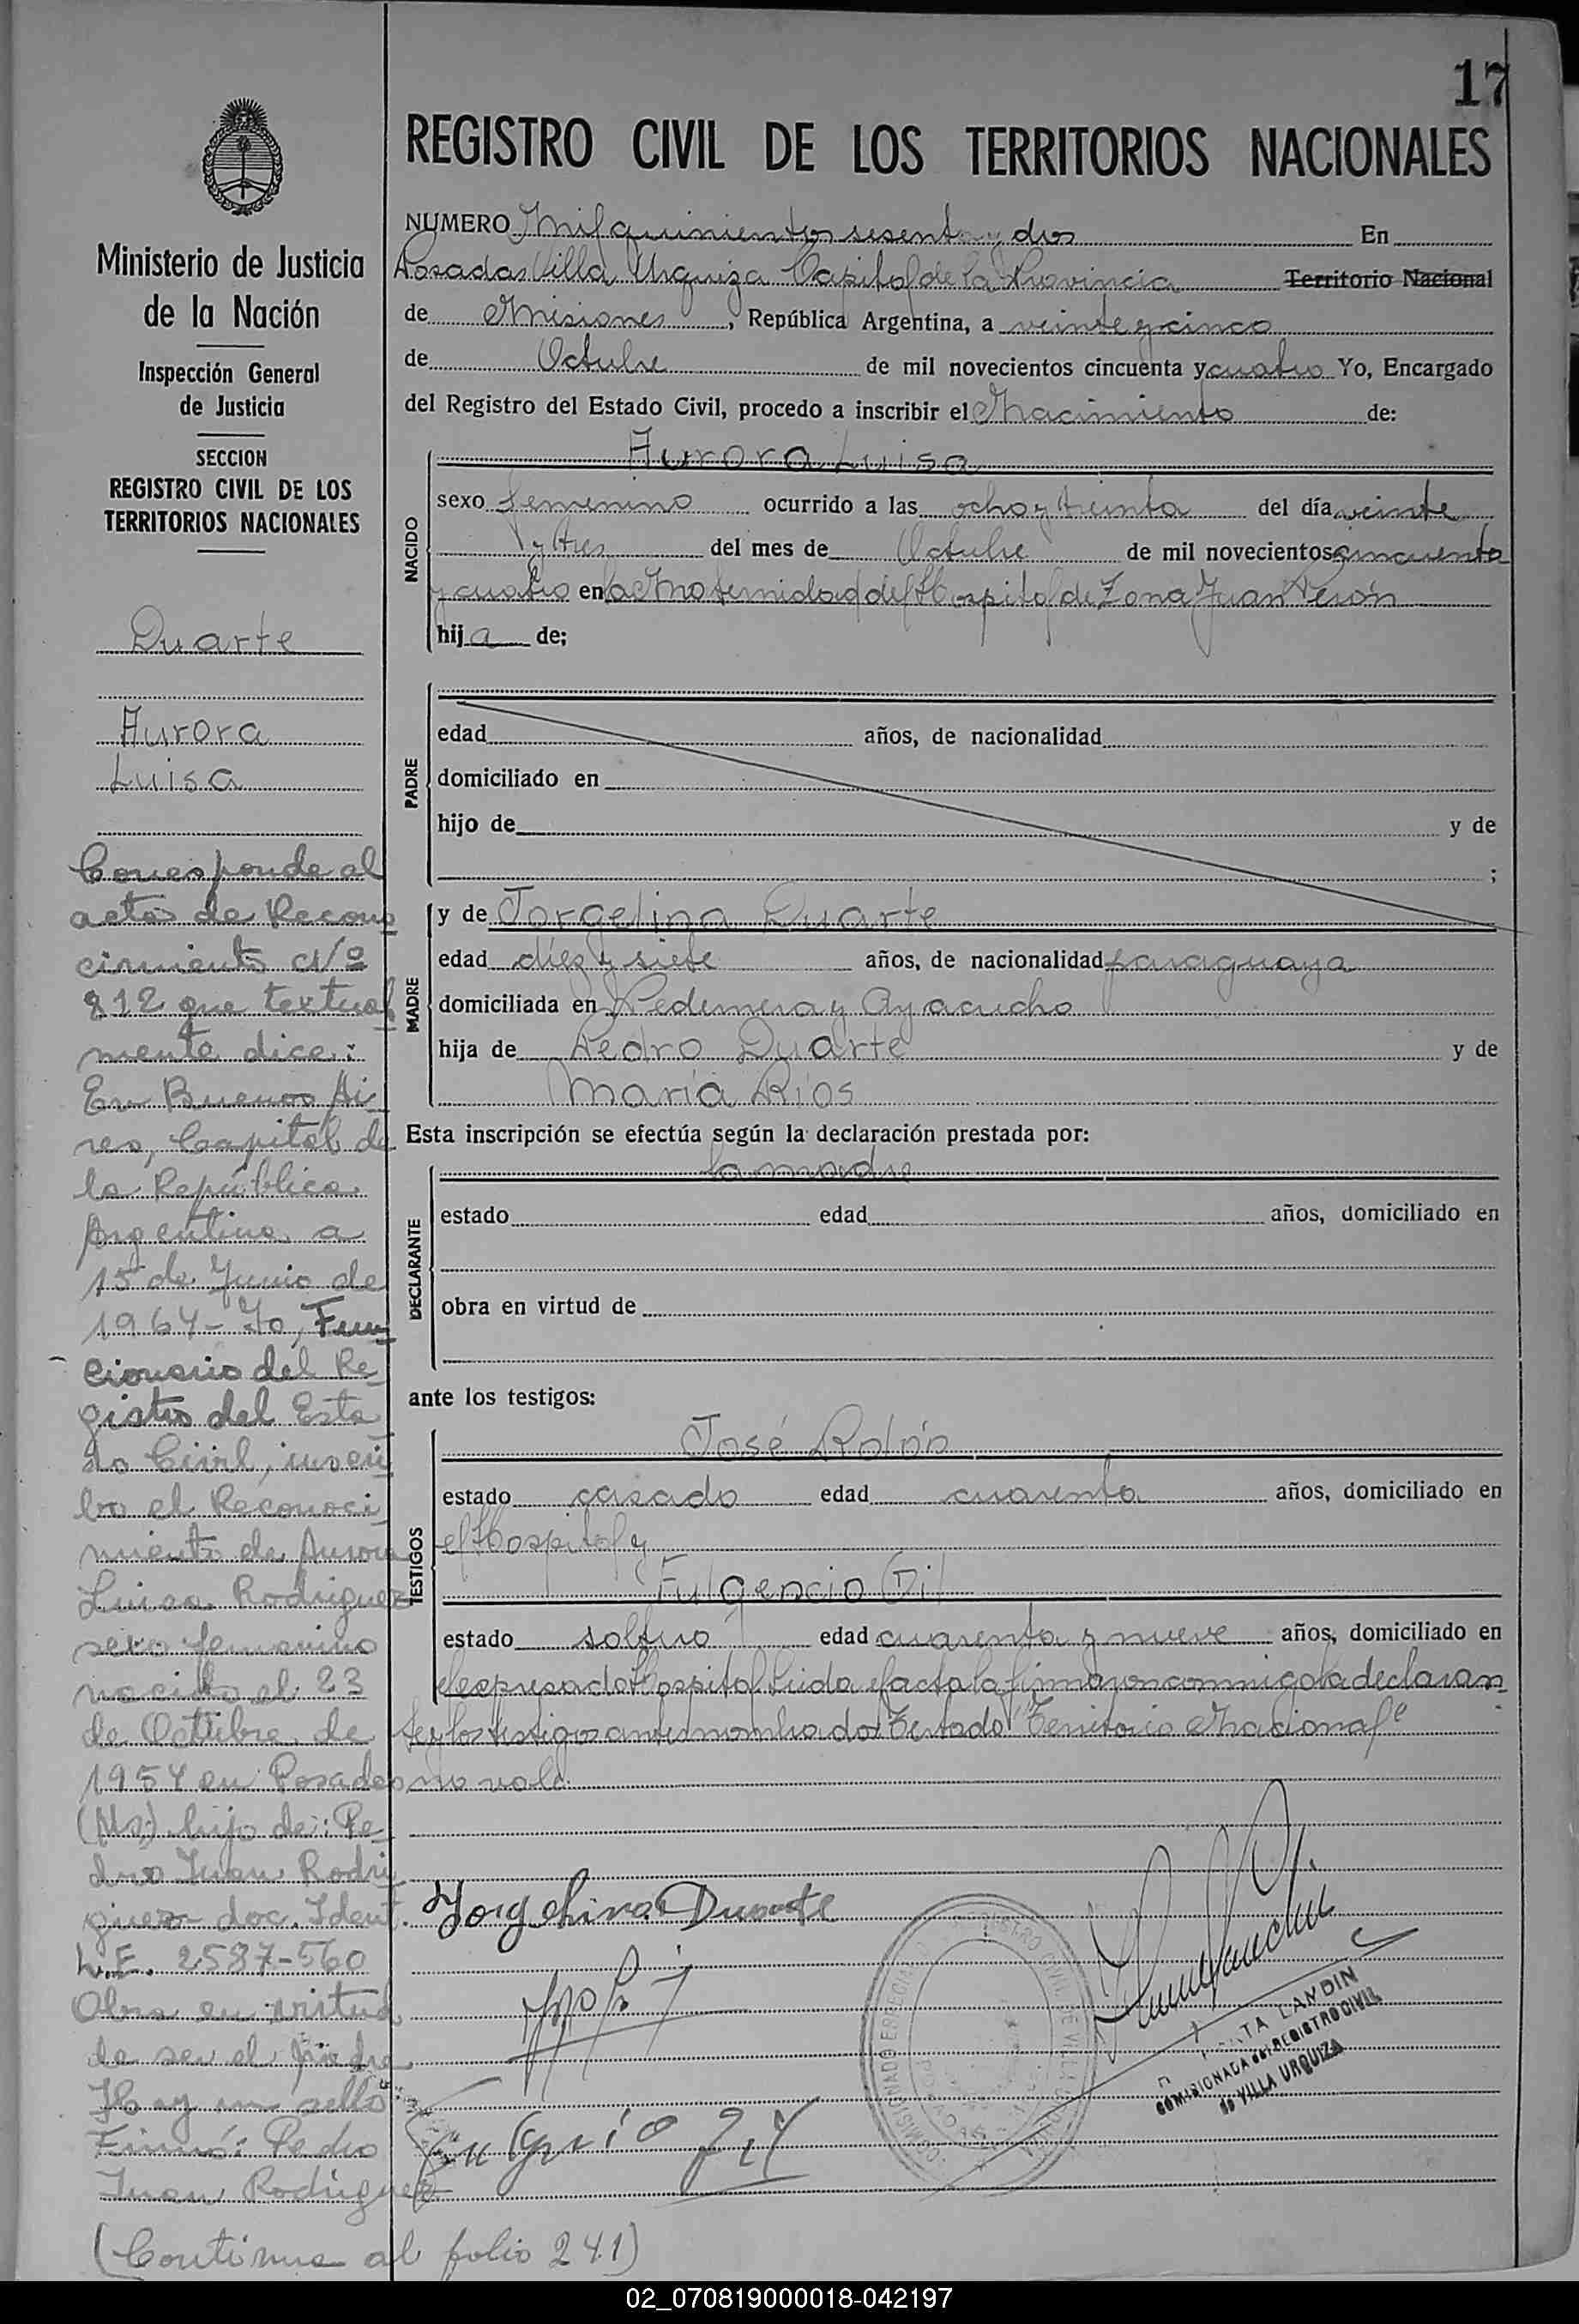 17
REGISTRO CIVIL DE LOS TERRITORIOS NACIONALES
Ministerio de Justicia
de la Nación
Inspección General
de Justicia
SECCION
REGISTRO CIVIL DE LOS
TERRITORIOS NACIONALES
Duarte
Aurora
Luisa
Corresponde al
acta de Recono
cimiento Nº
812 que textual
mente dice:
En Buenos Ai
res, Capital de
la República
Argentina a
15 de Junio de
1964 - Yo, Fun
cionario del Re
gistro del Esta
do Civil, inscri
bo el Reconoci
miento de Aurora
Luisa Rodriguez
sexo femenino
nacido el 23
de Octubre de
1954 en Posadas
(Ms) hijo de: Pe
dro Juan Rodri
guez doc. Ident.
L.E. 2587-560
Obra en virtud
de ser el padre
Hay un sello
Firmó: Pedro
Juan Rodriguez
(Continua al folio 241)
NUMERO Mil quinientos sesenta y dos En
Posadas Villa Urquiza Capital de la Provincia Territorio Nacional
de Misiones, República Argentina, a veinte y cinco
de Octubre de mil novecientos cincuenta y cuatro Yo, Encargado
del Registro del Estado Civil, procedo a inscribir el Nacimiento de:
NACIDO
Aurora Luisa
sexo femenino ocurrido a las ocho y treinta del día veinte
y tres del mes de Octubre de mil novecientos cincuenta
y cuatro en la Maternidad del Hospital de Zona Juan Perón
hija de;
PADRE
edad años, de nacionalidad
domiciliado en
hijo de y de
;
MADRE
y de Jorgelina Duarte
edad diez y siete años, de nacionalidad paraguaya
domiciliada en Pedernera y Ayacucho
hija de Pedro Duarte y de
María Ríos
Esta inscripción se efectúa según la declaración prestada por:
DECLARANTE
la madre
estado edad años, domiciliado en
obra en virtud de
ante los testigos:
TESTIGOS
José Rolón
estado casado edad cuarenta años, domiciliado en
el Hospital y
Fulgencio Gil
estado soltero edad cuarenta y nueve años, domiciliado en
el expresado Hospital Leida el acta la firmaron conmigo la declaran
te y los testigos antes nombrados Testado "Territorio Nacional"
no vale
Jorgelina Duarte
LANDIN
COMISIONADA del REGISTRO CIVIL
de VILLA URQUIZA
02_070819000018-042197